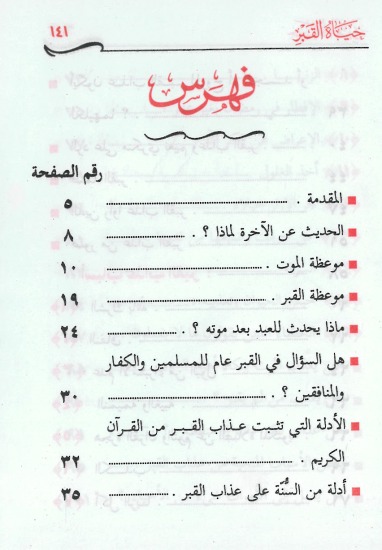 حياة القبر ١٤١
فهرس
رقم الصفحة
المقدمة . ٥
الحديث عن الآخرة لماذا ؟ . ٨
موعظة الموت . ١٠
موعظة القبر . ١٩
ماذا يحدث للعبد بعد موته ؟ . ٢٤
هل السؤال في القبر عام للمسلمين والكفار
والمنافقين ؟ . ٣٠
الأدلة التي تثبت عذاب القبر من القرآن
الكريم . ٣٢
أدلة من السُّنّة على عذاب القبر . ٣٥